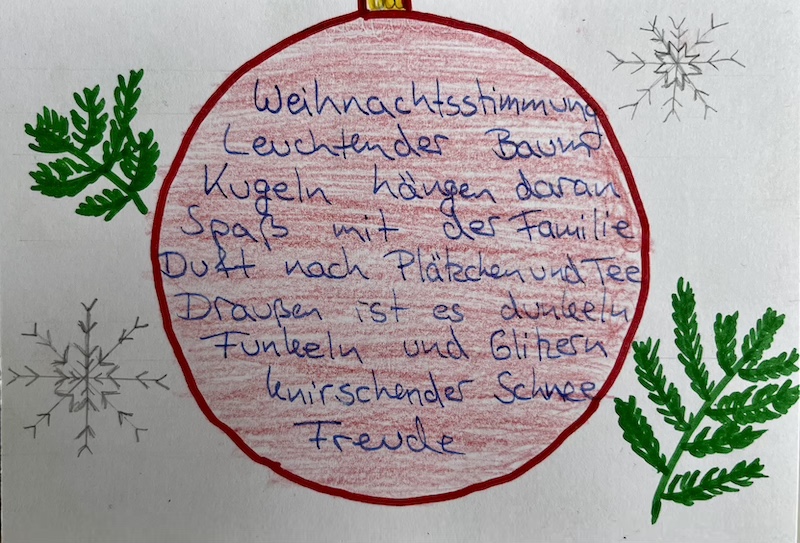 Weihnachtsstimmung
Leuchtender Baum
Kugeln hängen daran
Spaß mit der Familie
Duft nach Plätzchen und Tee
Draußen ist es dunkeln
Funkeln und Glitzern
knirschender Schnee
Freude